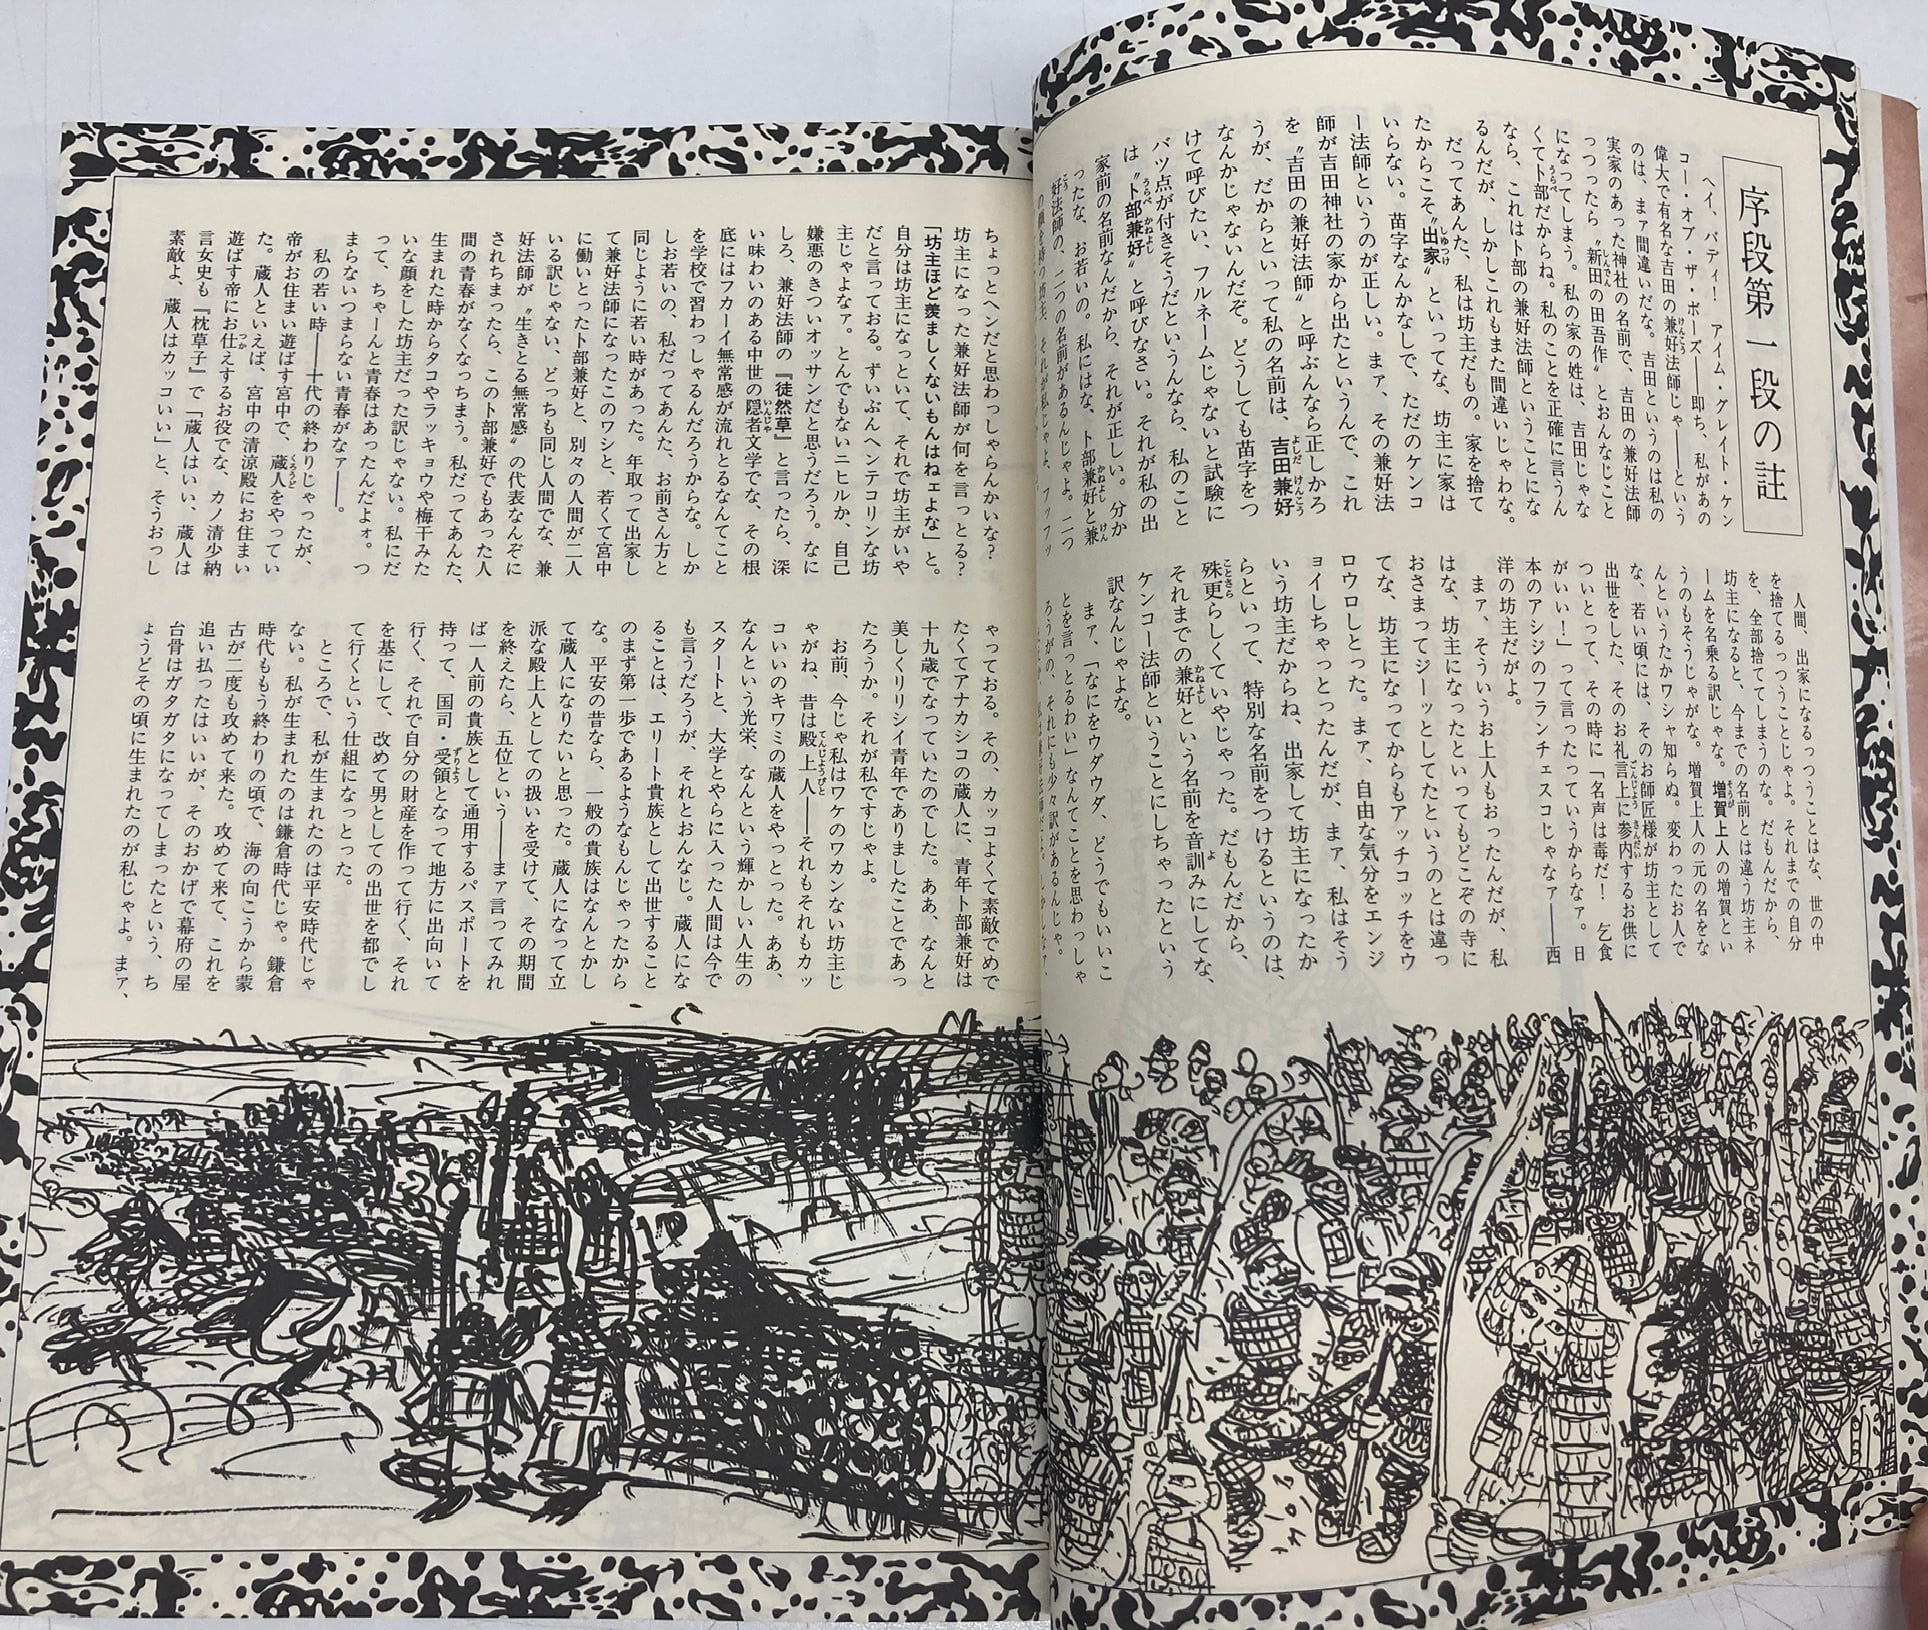 序段第一段の註
ヘイ、バディ！　アイム・グレイト・ケン
コー・オブ・ザ・ボーズ――即ち、私があの
偉大で有名な吉田の兼好法師じゃ――という
のは、まァ間違いだな。吉田というのは私の
実家のあった神社の名前で、吉田の兼好法師
っつったら〝新田の田吾作〟とおんなじこと
になってしまう。私の家の姓は、吉田じゃな
くて卜部だからね。私のことを正確に言うん
なら、これは卜部の兼好法師ということにな
るんだが、しかしこれもまた間違いじゃわな。
だってあんた、私は坊主だもの。家を捨て
たからこそ〝出家〟といってな、坊主に家は
いらない。苗字なんかなしで、ただのケンコ
ー法師というのが正しい。まァ、その兼好法
師が吉田神社の家から出たというんで、これ
を〝吉田の兼好法師〟と呼ぶんなら正しかろ
うが、だからといって私の名前は、吉田兼好
なんかじゃないんだぞ。どうしても苗字をつ
けて呼びたい、フルネームじゃないと試験に
バツ点が付きそうだというんなら、私のこと
は〝卜部兼好〟と呼びなさい。それが私の出
家前の名前なんだから、それが正しい。分か
ったな、お若いの。私にはな、卜部兼好と兼
好法師の、二つの名前があるんじゃよ。二つ
の顔を持つ坊主、それが私じゃよ、フッフッ
人間、出家になるっつうことはな、世の中
を捨てるっつうことじゃよ。それまでの自分
を、全部捨ててしまうのな。だもんだから、
坊主になると、今までの名前とは違う坊主ネ
ームを名乗る訳じゃな。増賀上人の増賀とい
うのもそうじゃがな。増賀上人の元の名をな
んというたかワシャ知らぬ。変わったお人で
な、若い頃には、そのお師匠様が坊主として
出世をした、そのお礼言上に参内するお供に
ついとって、その時に「名声は毒だ！　乞食
がいい！」って言ったっていうからなァ。日
本のアシジのフランチェスコじゃなァ――西
洋の坊主だがよ。
まァ、そういうお上人もおったんだが、私
はな、坊主になったといってもどこぞの寺に
おさまってジーッとしてたというのとは違っ
てな、坊主になってからもアッチコッチをウ
ロウロしとった。まァ、自由な気分をエンジ
ョイしちゃっとったんだが、まァ、私はそう
いう坊主だからね、出家して坊主になったか
らといって、特別な名前をつけるというのは、
殊更らしくていやじゃった。だもんだから、
それまでの兼好という名前を音訓みにしてな、
ケンコー法師ということにしちゃったという
訳なんじゃよな。
まァ、「なにをウダウダ、どうでもいいこ
とを言っとるわい」なんてことを思わっしゃ
ろうがの、それにも少々訳があるんじゃ。
ちょっとヘンだと思わっしゃらんかいな？
坊主になった兼好法師が何を言っとる？
「坊主ほど羨ましくないもんはねェよな」と。
自分は坊主になっといて、それで坊主がいや
だと言っておる。ずいぶんヘンテコリンな坊
主じゃよなァ。とんでもないニヒルか、自己
嫌悪のきついオッサンだと思うだろう。なに
しろ、兼好法師の『徒然草』と言ったら、深
い味わいのある中世の隠者文学でな、その根
底にはフカーイ無常感が流れとるなんてこと
を学校で習わっしゃるんだろうからな。しか
しお若いの、私だってあんた、お前さん方と
同じように若い時があった。年取って出家し
て兼好法師になったこのワシと、若くて宮中
に働いとった卜部兼好と、別々の人間が二人
いる訳じゃない、どっちも同じ人間でな、兼
好法師が〝生きとる無常感〟の代表なんぞに
されちまったら、この卜部兼好でもあった人
間の青春がなくなっちまう。私だってあんた、
生まれた時からタコやラッキョウや梅干みた
いな顔をした坊主だった訳じゃない。私にだ
って、ちゃーんと青春はあったんだよォ。つ
まらないつまらない青春がなァ――。
私の若い時――十代の終わりじゃったが、
帝がお住まい遊ばす宮中で、蔵人をやってい
た。蔵人といえば、宮中の清涼殿にお住まい
遊ばす帝にお仕えするお役でな、カノ清少納
言女史も『枕草子』で「蔵人はいい、蔵人は
素敵よ、蔵人はカッコいい」と、そうおっし
ゃっておる。その、カッコよくて素敵でめで
たくてアナカシコの蔵人に、青年卜部兼好は
十九歳でなっていたのでした。ああ、なんと
美しくリリシイ青年でありましたことであっ
たろうか。それが私ですじゃよ。
お前、今じゃ私はワケのワカンない坊主じ
ゃがね、昔は殿上人――それもそれもカッ
コいいのキワミの蔵人をやっとった。ああ、
なんという光栄、なんという輝かしい人生の
スタートと、大学とやらに入った人間は今で
も言うだろうが、それとおんなじ。蔵人にな
ることは、エリート貴族として出世すること
のまず第一歩であるようなもんじゃったから
な。平安の昔なら、一般の貴族はなんとかし
て蔵人になりたいと思った。蔵人になって立
派な殿上人としての扱いを受けて、その期間
を終えたら、五位という――まァ言ってみれ
ば一人前の貴族として通用するパスポートを
持って、国司・受領となって地方に出向いて
行く、それで自分の財産を作って行く、それ
を基にして、改めて男としての出世を都でし
て行くという仕組になっとった。
ところで、私が生まれたのは平安時代じゃ
ない。私が生まれたのは鎌倉時代じゃ。鎌倉
時代ももう終わりの頃で、海の向こうから蒙
古が二度も攻めて来た。攻めて来て、これを
追い払ったはいいが、そのおかげで幕府の屋
台骨はガタガタになってしまったという、ち
ょうどその頃に生まれたのが私じゃよ。まァ、